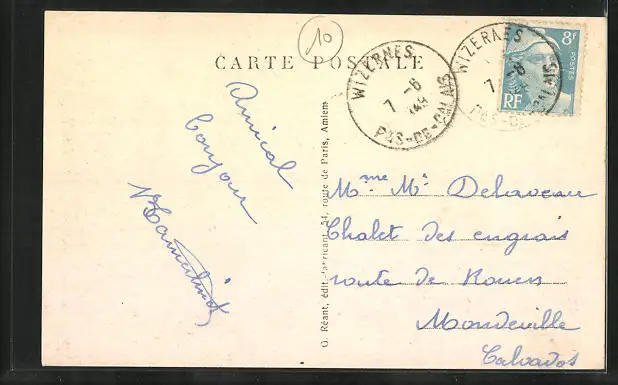 10
CARTE POSTALE
WIZERNES
7 -6
PAS-DE-CALAIS
WIZERNES
7 -6
PAS-DE-CALAIS
8f
POSTES
RF
Amical
bonjour
G. Réant, édit.-fabricant, 54, route de Paris, Amiens
Mme Mr Delaveau
Chalet des engrais
route de Rouen
Mondeville
Calvados